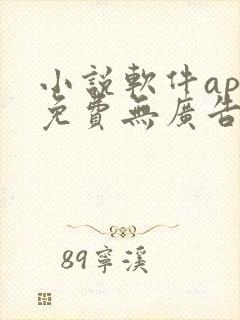 小說軟件ap
免費無廣告
89寧溪